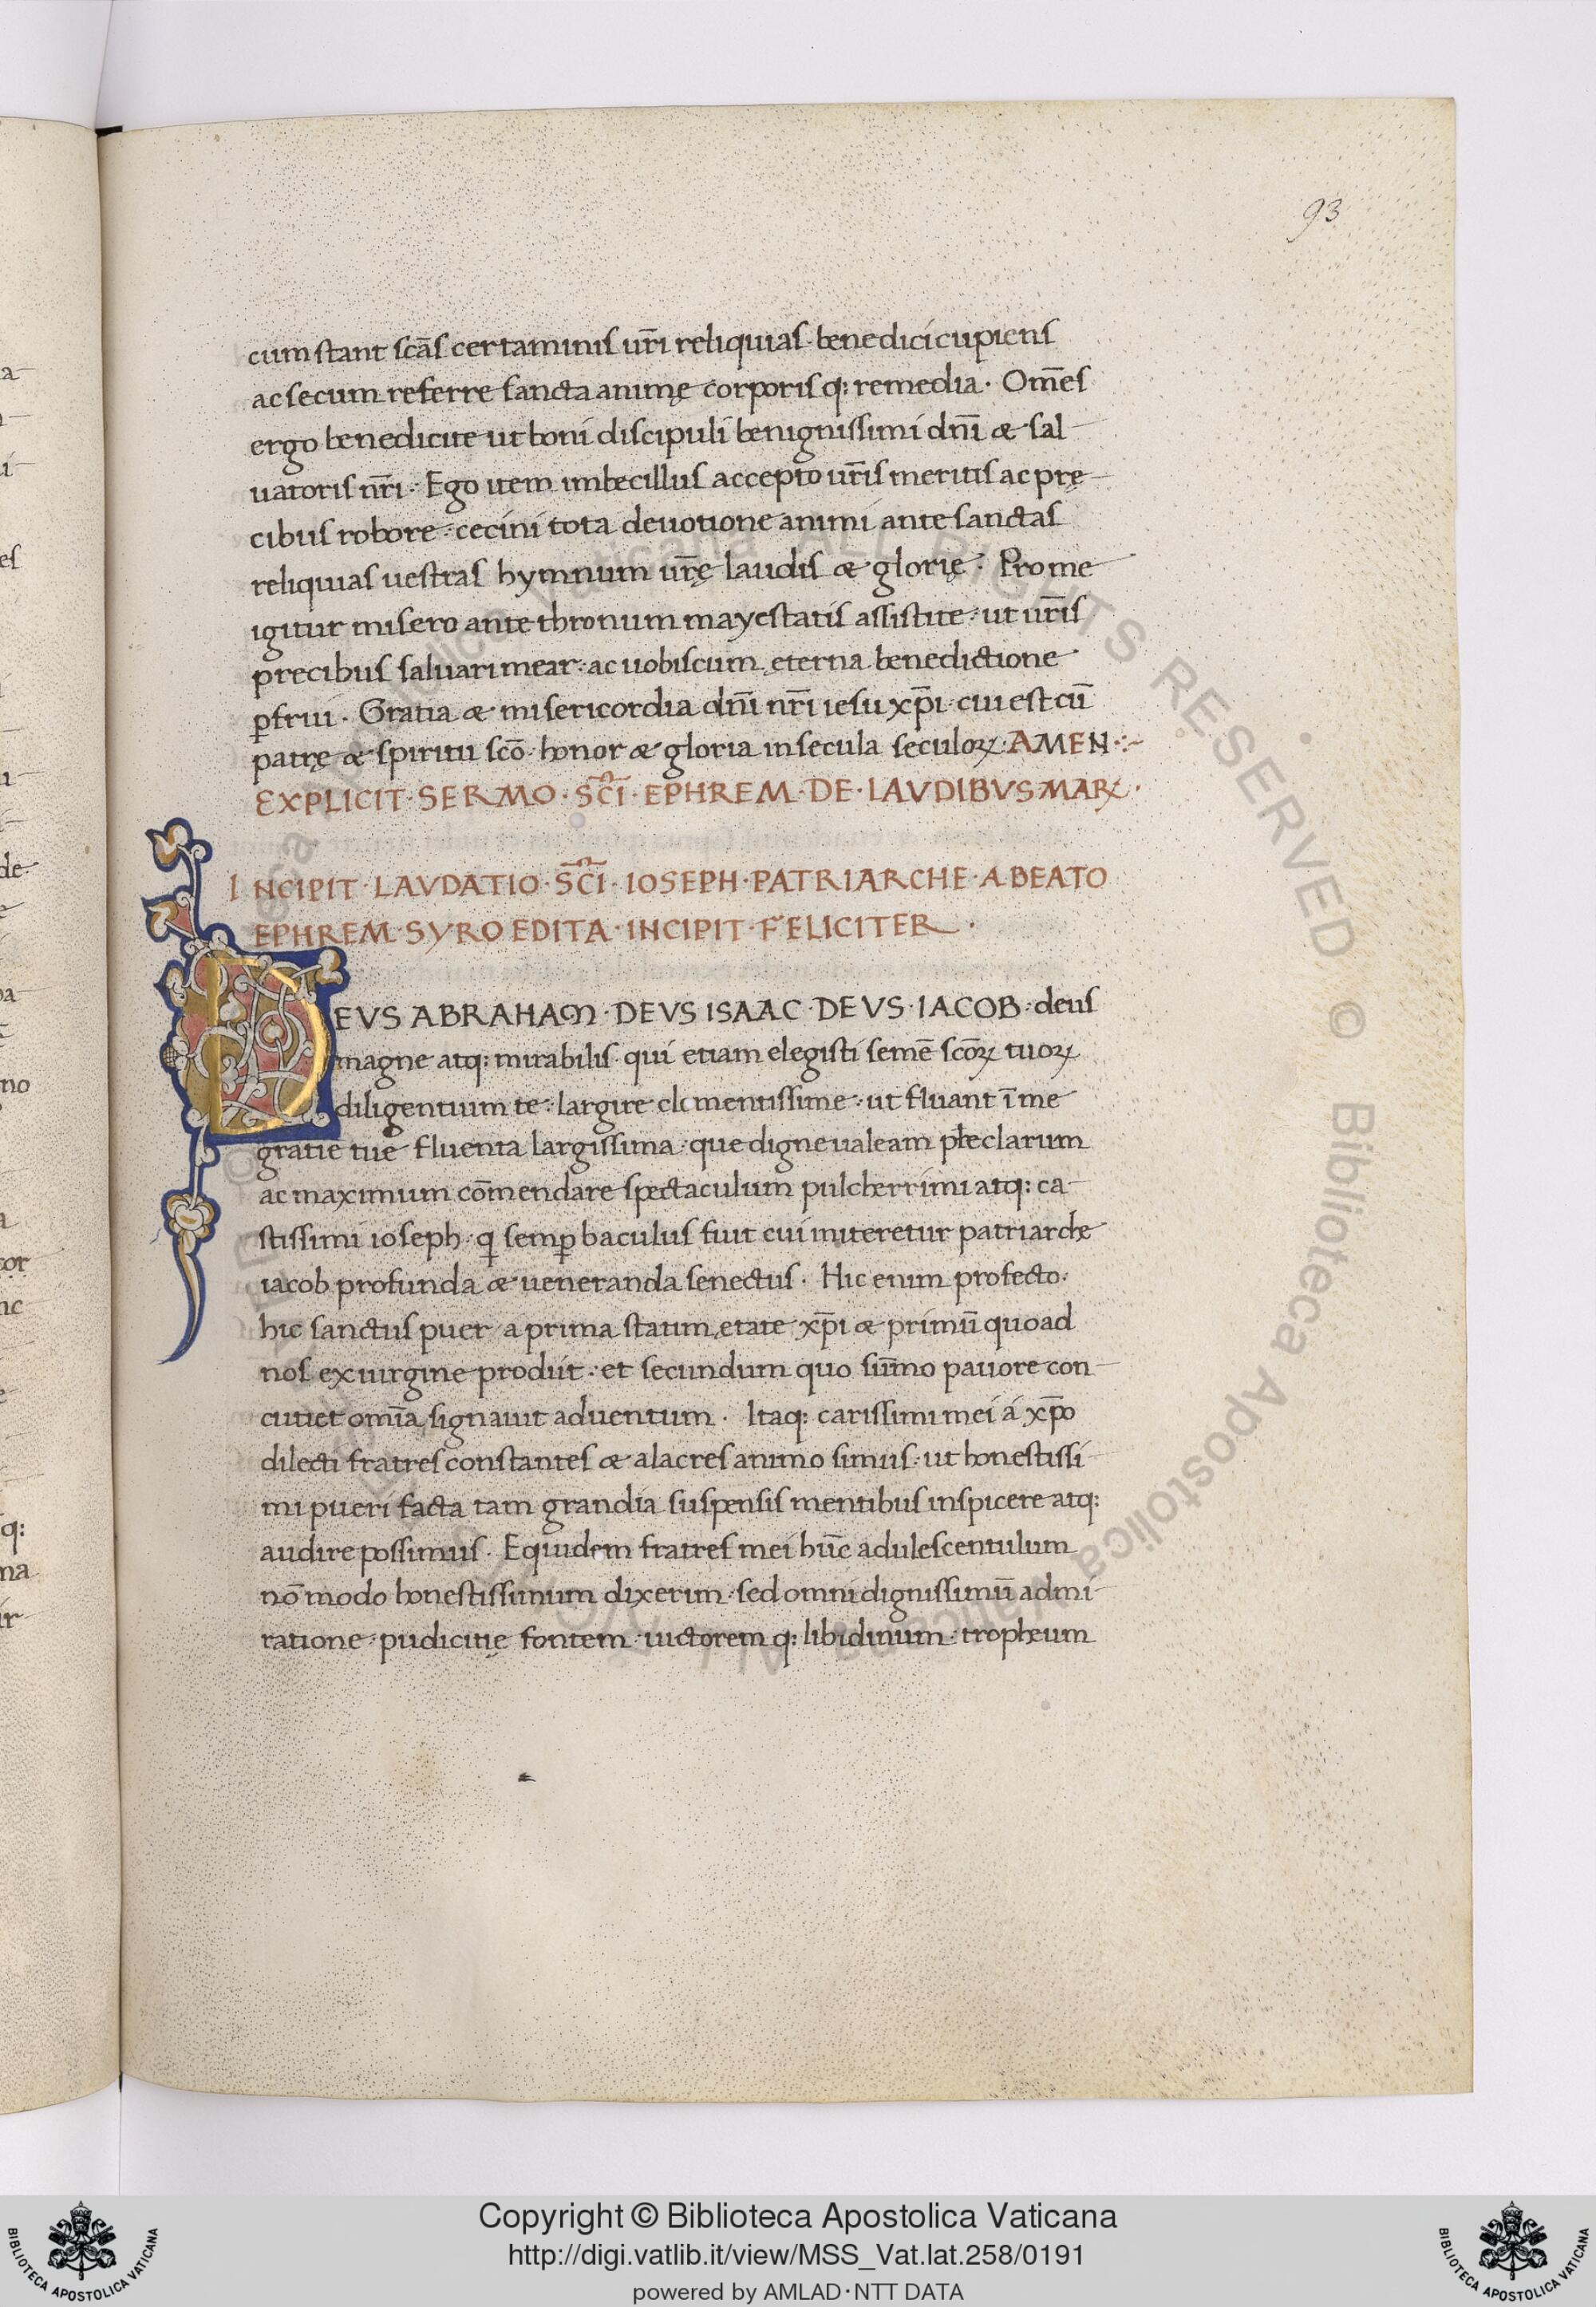 93
cum stant scās certaminis ur̄i reliquias · benedici cupiens
ac secum referre sancta animę corporis q: remedia · Om̄es
ergo benedicite ut boni discipuli benignissimi dn̄i & sal-
uatoris nr̄i · Ego item imbecillus accepto ur̄is meritis ac prę-
cibus robore · cecini tota deuotione animi ante sanctas
reliquias uestras hymnum ur̄ę laudis & glorię · Pro me
igitur misero ante thronum mayestatis assistite · ut ur̄is
precibus saluari mear · ac uobiscum ęterna benedictione
ꝑfrui · Gratia & misericordia dn̄i nr̄i iesu xp̄i · cui est cū
patrę & spiritu scō · honor & gloria in secula seculoꝝ · AMEN ·:~
EXPLICIT · SERMO · SC̄I · EPHREM · DE · LAVDIBVS MARꝝ ·
INCIPIT · LAVDATIO · SC̄I · IOSEPH · PATRIARCHE · A BEATO
EPHREM · SYRO EDITA · INCIPIT · FELICITER ·
DEVS ABRAHAM · DEVS ISAAC · DEVS · IACOB · deus
magne atq: mirabilis · qui etiam elegisti semē scōꝝ tuoꝝ
diligentium te · largire clementissime · ut fluant ī me
gratie tue fluenta largissima · que digne ualeam preclarum
ac maximum cōmendare spectaculum pulcherrimi atq: ca-
stissimi ioseph · q semꝑ baculus fuit cui niteretur patriarche
iacob profunda & ueneranda senectus · Hic enim profecto ·
hic sanctus puer a prima statim ętate xp̄i & primū quo ad
nos ex uirgine prodiit · et secundum quo sūmo pauore con-
cutiet omīa signauit aduentum · Itaq: carissimi mei á xp̄o
dilecti fratres constantes & alacres animo simus · ut honestissi-
mi pueri facta tam grandia suspensis mentibus inspicere atq:
audire possimus · Equidem fratres mei hūc adulescentulum
nō modo honestissimum dixerim · sed omni dignissimū admi-
ratione · pudicitię fontem · uictorem q: libidinum · tropheum
Copyright © Biblioteca Apostolica Vaticana
http://digi.vatlib.it/view/MSS_Vat.lat.258/0191
powered by AMLAD · NTT DATA